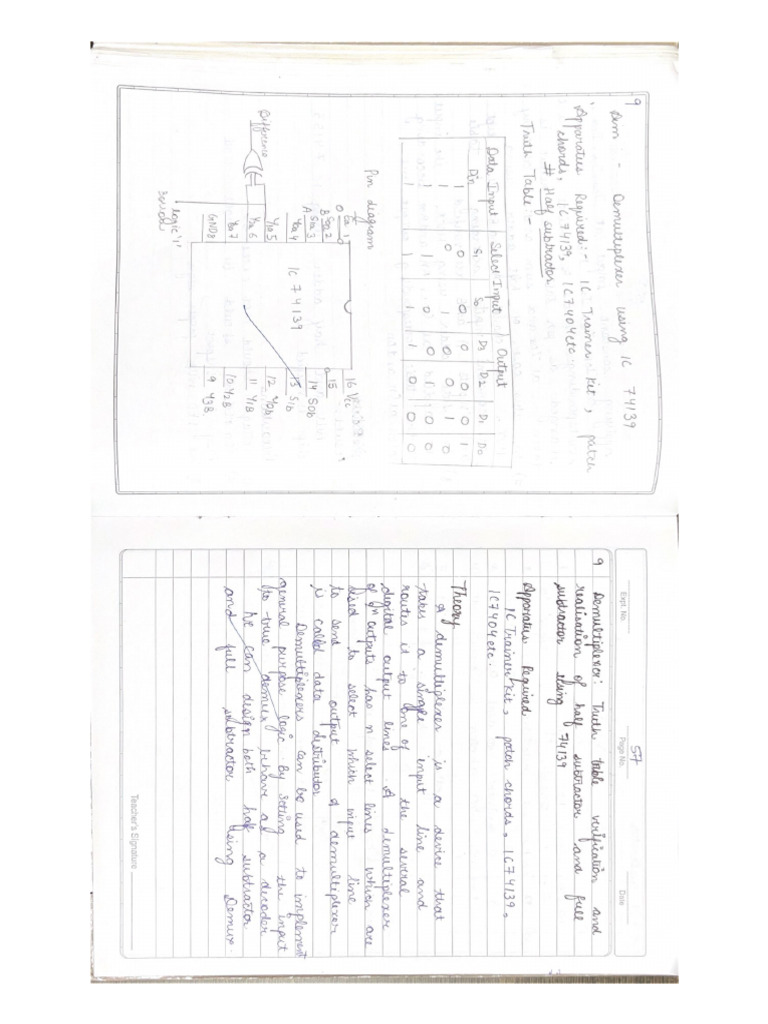 9
Aim - Demultiplexer using IC 74139
Apparatus Required:- IC Trainer Kit, patch
chords, IC 74139, IC7404 etc.
# Half subtractor
Truth Table -
Data Input Select Input Output
Din S1 S0 D3 D2 D1 D0
1 0 0 0 0 0 1
1 0 1 0 0 1 0
1 1 0 0 1 0 0
1 1 1 1 0 0 0
Pin diagram
IC 74139
0 Ea 1
B S0a 2
A S1a 3
Y0a 4
Y1a 5
Y2a 6
Y3a 7
GND 8
16 Vcc
15
14 S0b
13 S1b
12 Y0b
11 Y1B
10 Y2B
9 Y3B
Difference
logic '1'
Borrow
Expt. No.
Page No. 57
Date
9 Demultiplexor: Truth table verification and
realisation of half subtractor and full
subtractor using 74139
Apparatus Required
IC Trainer Kit, patch chords, IC74139,
IC7404 etc.
Theory
A demultiplexer is a device that
takes a single input line and
routes it to one of the several
digital output lines. A demultiplexer
of 2^n outputs has n select lines which are
used to select which input line
to send output A demultiplexer
is called data distributor
Demultiplexers can be used to implement
general purpose logic By setting the input
to true demux behave as a decoder
We can design both half subtractor
and full subtractor using Demux.
Teacher's Signature